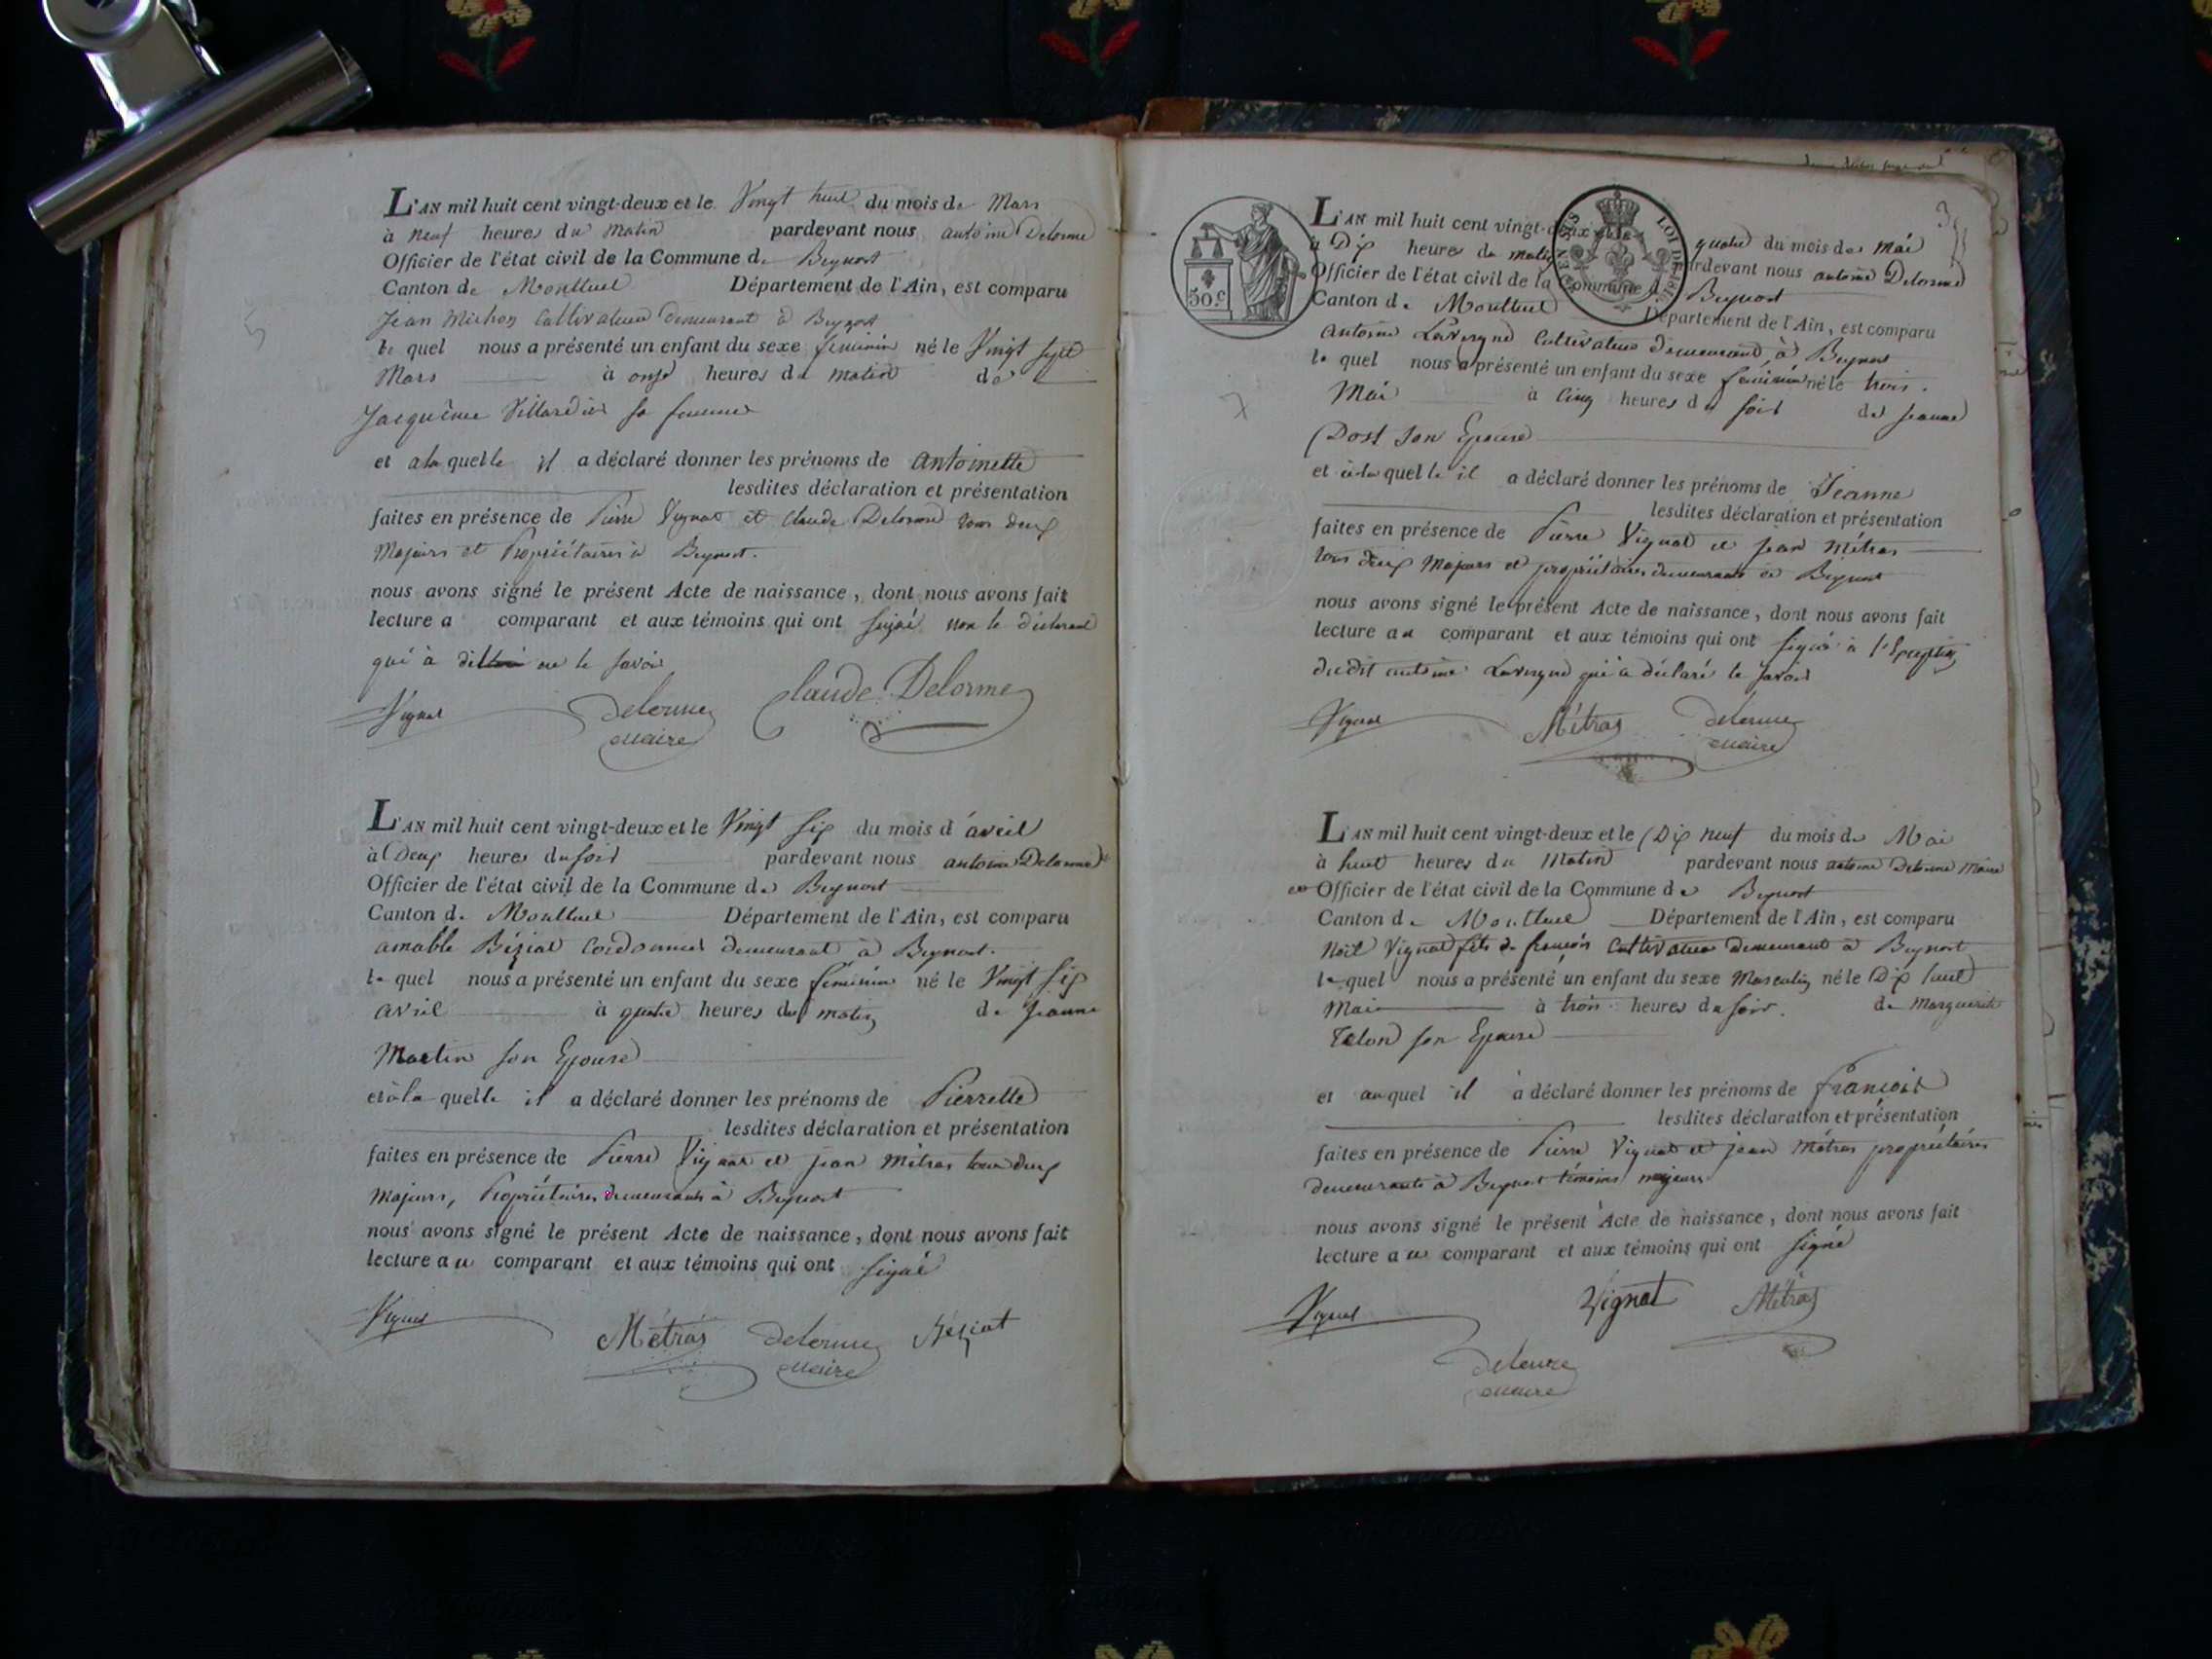 L'AN mil huit cent vingt-deux et le Vingt huit du mois de Mars
à neuf heures du matin pardevant nous antoine Delorme
Officier de l'état civil de la Commune de Beynost
Canton de Montluel Département de l'Ain, est comparu
Jean Michon Cultivateur demeurant à Beynost
le quel nous a présenté un enfant du sexe feminin né le Vingt sept
Mars à onze heures du matin de
Jacquême Villardier sa femme
et ala quelle il a déclaré donner les prénoms de Antoinette
lesdites déclaration et présentation
faites en présence de Pierre Vignat et Claude Delorme tous deux
Majeurs et Propriétaires à Beynost.
nous avons signé le présent Acte de naissance, dont nous avons fait
lecture a comparant et aux témoins qui ont signé non le déclarant
qui à dit ne le savoir
Vignat delorme Claude Delorme
maire
L'AN mil huit cent vingt-deux et le Vingt six du mois d'avril
à Deux heures du soir pardevant nous antoine Delorme
Officier de l'état civil de la Commune de Beynost
Canton de Montluel Département de l'Ain, est comparu
amable Béziat Cordonnier demeurant à Beynost.
le quel nous a présenté un enfant du sexe feminin né le Vingt six
avril à quatre heures du matin de Jeanne
Martin son Epouse
et à la quelle il a déclaré donner les prénoms de Pierrette
lesdites déclaration et présentation
faites en présence de Pierre Vignat et jean Métras tous deux
Majeurs, Propriétaires demeurants à Beynost
nous avons signé le présent Acte de naissance, dont nous avons fait
lecture au comparant et aux témoins qui ont signé
Vignat Métras delorme Béziat
maire
3
50.c
LOI DE 1816
L'AN mil huit cent vingt-deux et le quatre du mois de Mai
à Dix heures du matin pardevant nous antoine Delorme
Officier de l'état civil de la Commune de Beynost
Canton de Montluel Département de l'Ain, est comparu
Antoine Lavergne Cultivateur demeurant à Beynost
le quel nous a présenté un enfant du sexe feminin né le trois.
Mai à Cinq heures du soir de Jeanne
Post son Epouse
et à la quelle il a déclaré donner les prénoms de Jeanne
lesdites déclaration et présentation
faites en présence de Pierre Vignat et jean Métras
tous deux Majeurs et propriétaires demeurants à Beynost
nous avons signé le présent Acte de naissance, dont nous avons fait
lecture au comparant et aux témoins qui ont signé à l'Exception
dudit antoine Lavergne qui a déclaré le savoir
Vignat Métras delorme
maire
L'AN mil huit cent vingt-deux et le Dix neuf du mois de Mai
à huit heures du Matin pardevant nous antoine Delorme Maire
Officier de l'état civil de la Commune de Beynost
Canton de Montluel Département de l'Ain, est comparu
Noël Vignat fils de françois Cultivateur demeurant à Beynost
le quel nous a présenté un enfant du sexe Masculin né le Dix huit
Mai à trois heures du soir. de Marguerite
Talon son Epouse
et auquel il a déclaré donner les prénoms de françois
lesdites déclaration et présentation
faites en présence de Pierre Vignat et jean Métras propriétaires
demeurants à Beynost témoins majeurs
nous avons signé le présent Acte de naissance, dont nous avons fait
lecture au comparant et aux témoins qui ont signé
Vignat Vignat Métras
delorme
maire
5
7